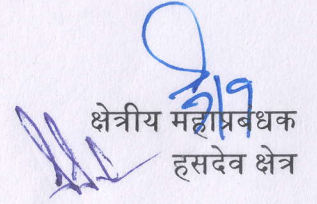 क्षेत्रीय महाप्रबंधक
हसदेव क्षेत्र